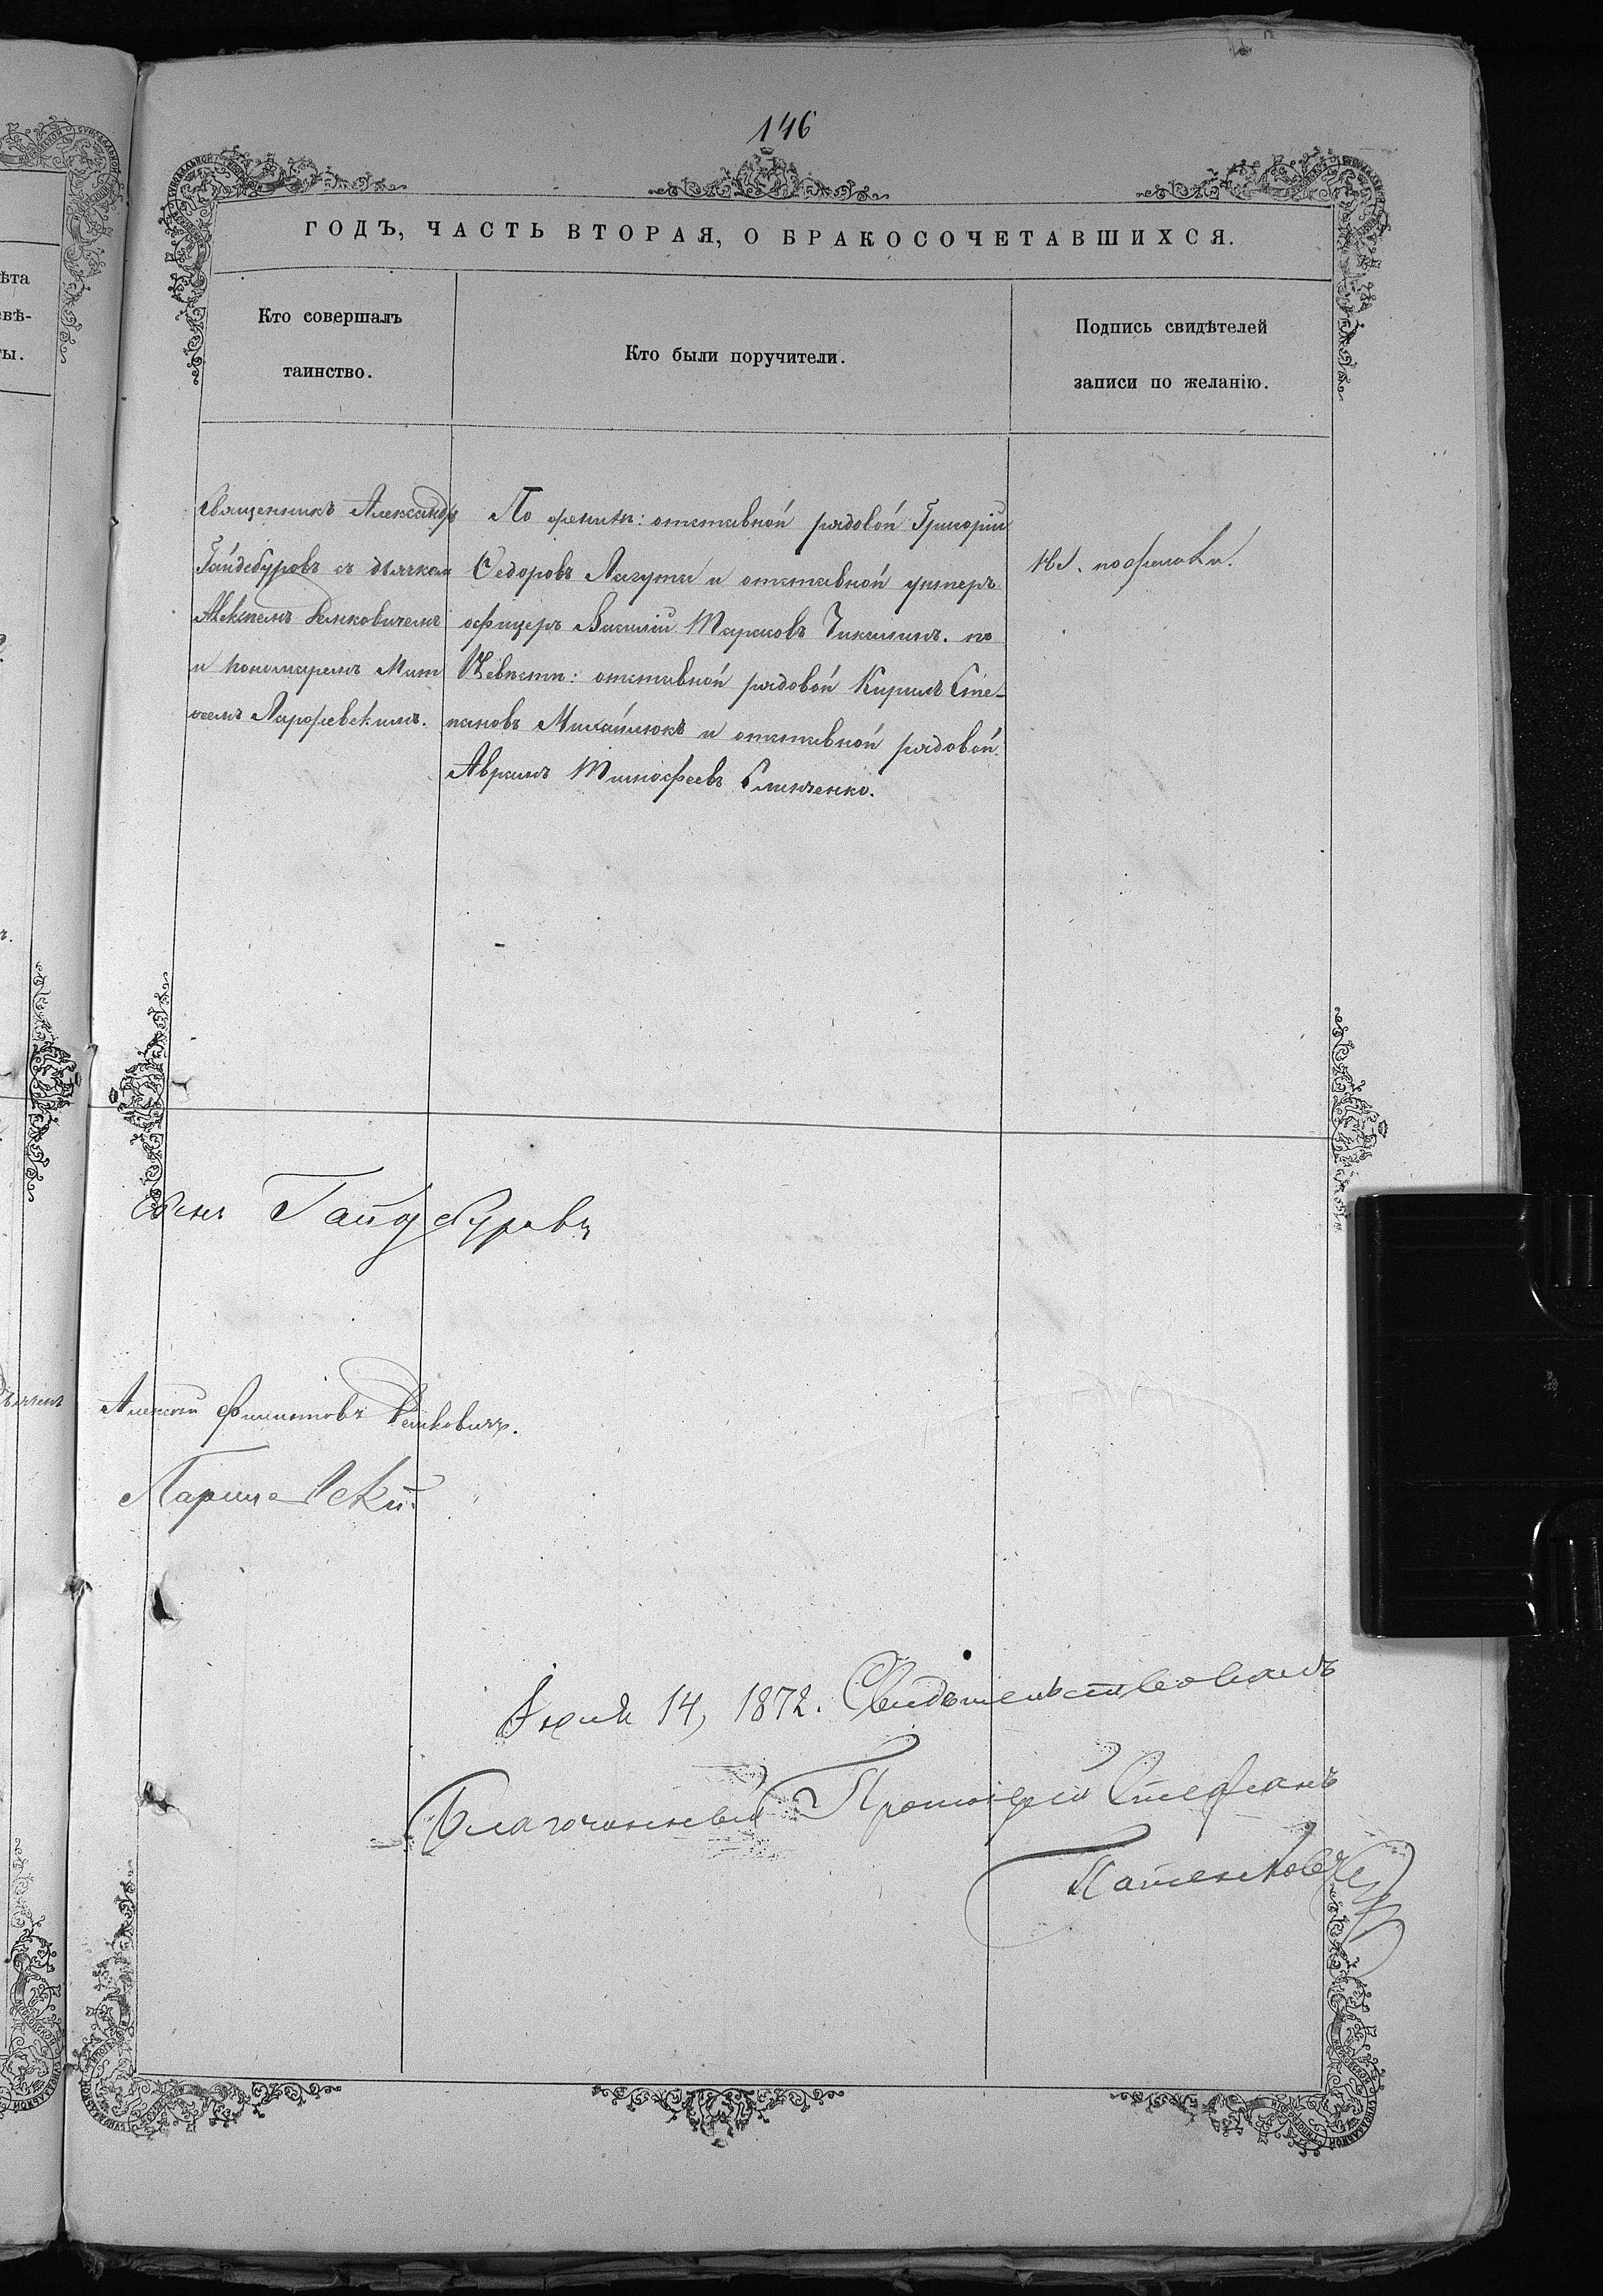 146
ГОДЪ, ЧАСТЬ ВТОРАЯ, О БРАКОСОЧЕТАВШИХСЯ.
Кто совершалъ
таинство.
Кто были поручители.
Подпись свидѣтелей
записи по желанію.
Священникъ Александръ
Гайдебуровъ съ дьячкомъ
Алексѣемъ
и пономаремъ
По женихѣ: отставной рядовой Григорій
Ѳедоровъ Лагута и отставной унтеръ
офицеръ Василій Тарасовъ по
Невѣстѣ: отставной рядовой Кирилъ Сте-
пановъ Михайлюкъ и отставной рядовой
Аврамъ Тимофеевъ
Гайдебуровъ
Алексѣй Филиповъ
Іюня 14, 1872. Свидѣтельствовалъ
Благочинный Протоіерей Стефанъ